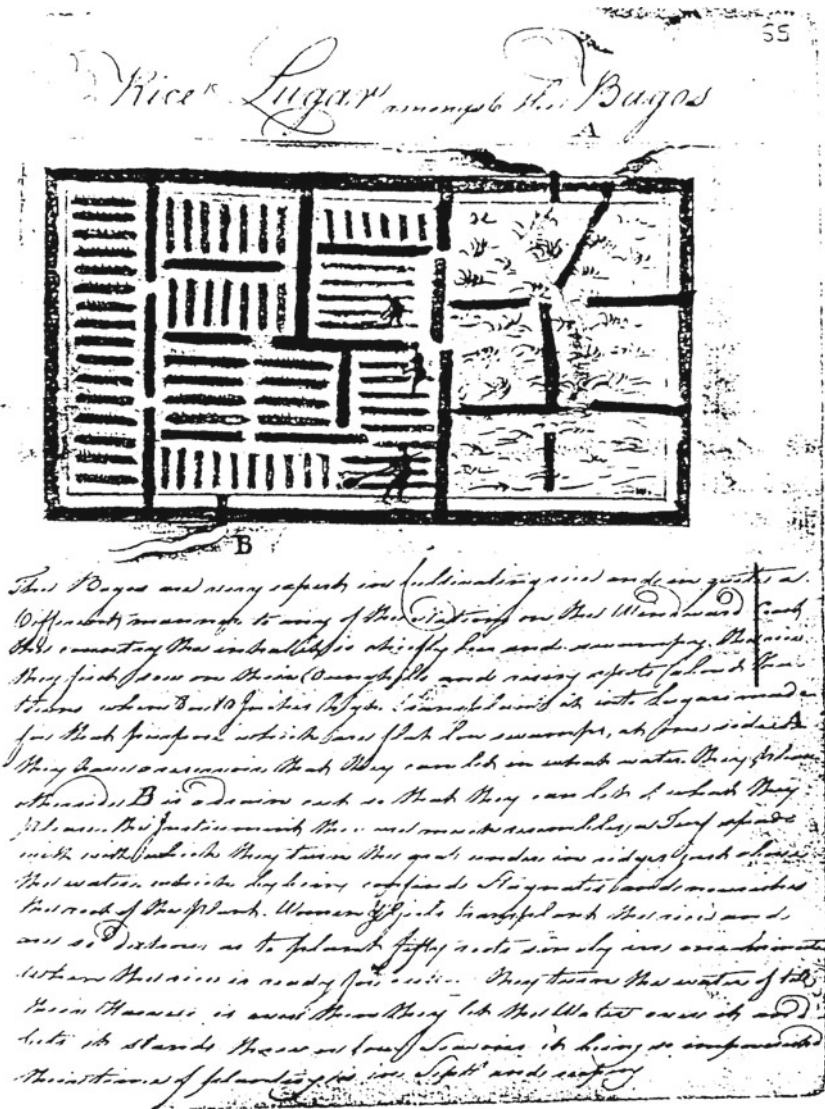 55
Rice Lugars amongst the Bagos
A
B
The Bagos are very expert in Cultivating rice and in quite a
Different manner to any of the Nations on the Windward Coast
this country they inhabit is chiefly low and swampy. The rice
they first sow on their Dunghills and rising spots about their
towns when 8 or 10 Inches high Transplant it into Lugars made
for that purpose which are flat low swamps, at one side A
they have a reservoir that they can let in what water they please
other side B is a drain cut so that they can let of what they
please. the Instrument they use much resembles a Turf spade
with which they turn the grass under in ridges just above
the water which by being confined Stagnates and nourishes
the root of the plant. Women & Girls transplant the rice and
are so dextrous as to plant fifty roots singly in one minute
when the rice is ready for They turn the water of till
their Harvest is over then they let the Water over it and
lets it stands three or four Seasons it being so impoverished
their time of planting is in Septr and reaping